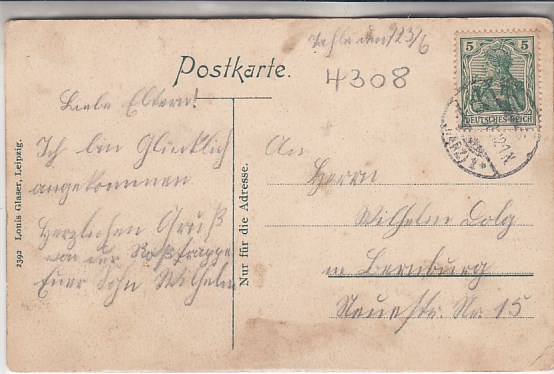 Thale den 23/6
Postkarte.
4308
5 5
DEUTSCHES REICH
Liebe Eltern!
Ich bin Glücklich
angekommen
Herzlichen Gruß
von der Roßtrappe
Euer Sohn Wilhelm
An
Herrn
Wilhelm Dolg
in Bernburg
Neuestr. Nr. 15
Nur für die Adresse.
2392 Louis Glaser, Leipzig.
(HARZ)